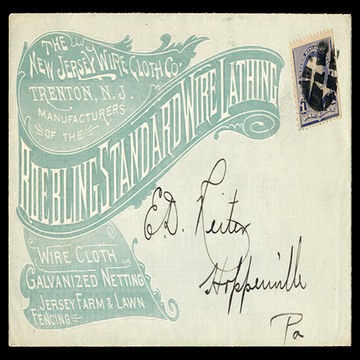 THE
NEW JERSEY WIRE CLOTH CO.
TRENTON, N. J.
MANUFACTURERS
OF THE
ROEBLING STANDARD WIRE LATHING
WIRE CLOTH
GALVANIZED NETTING
JERSEY FARM & LAWN
FENCING
E.D. Reiter
Hoppenville
Pa